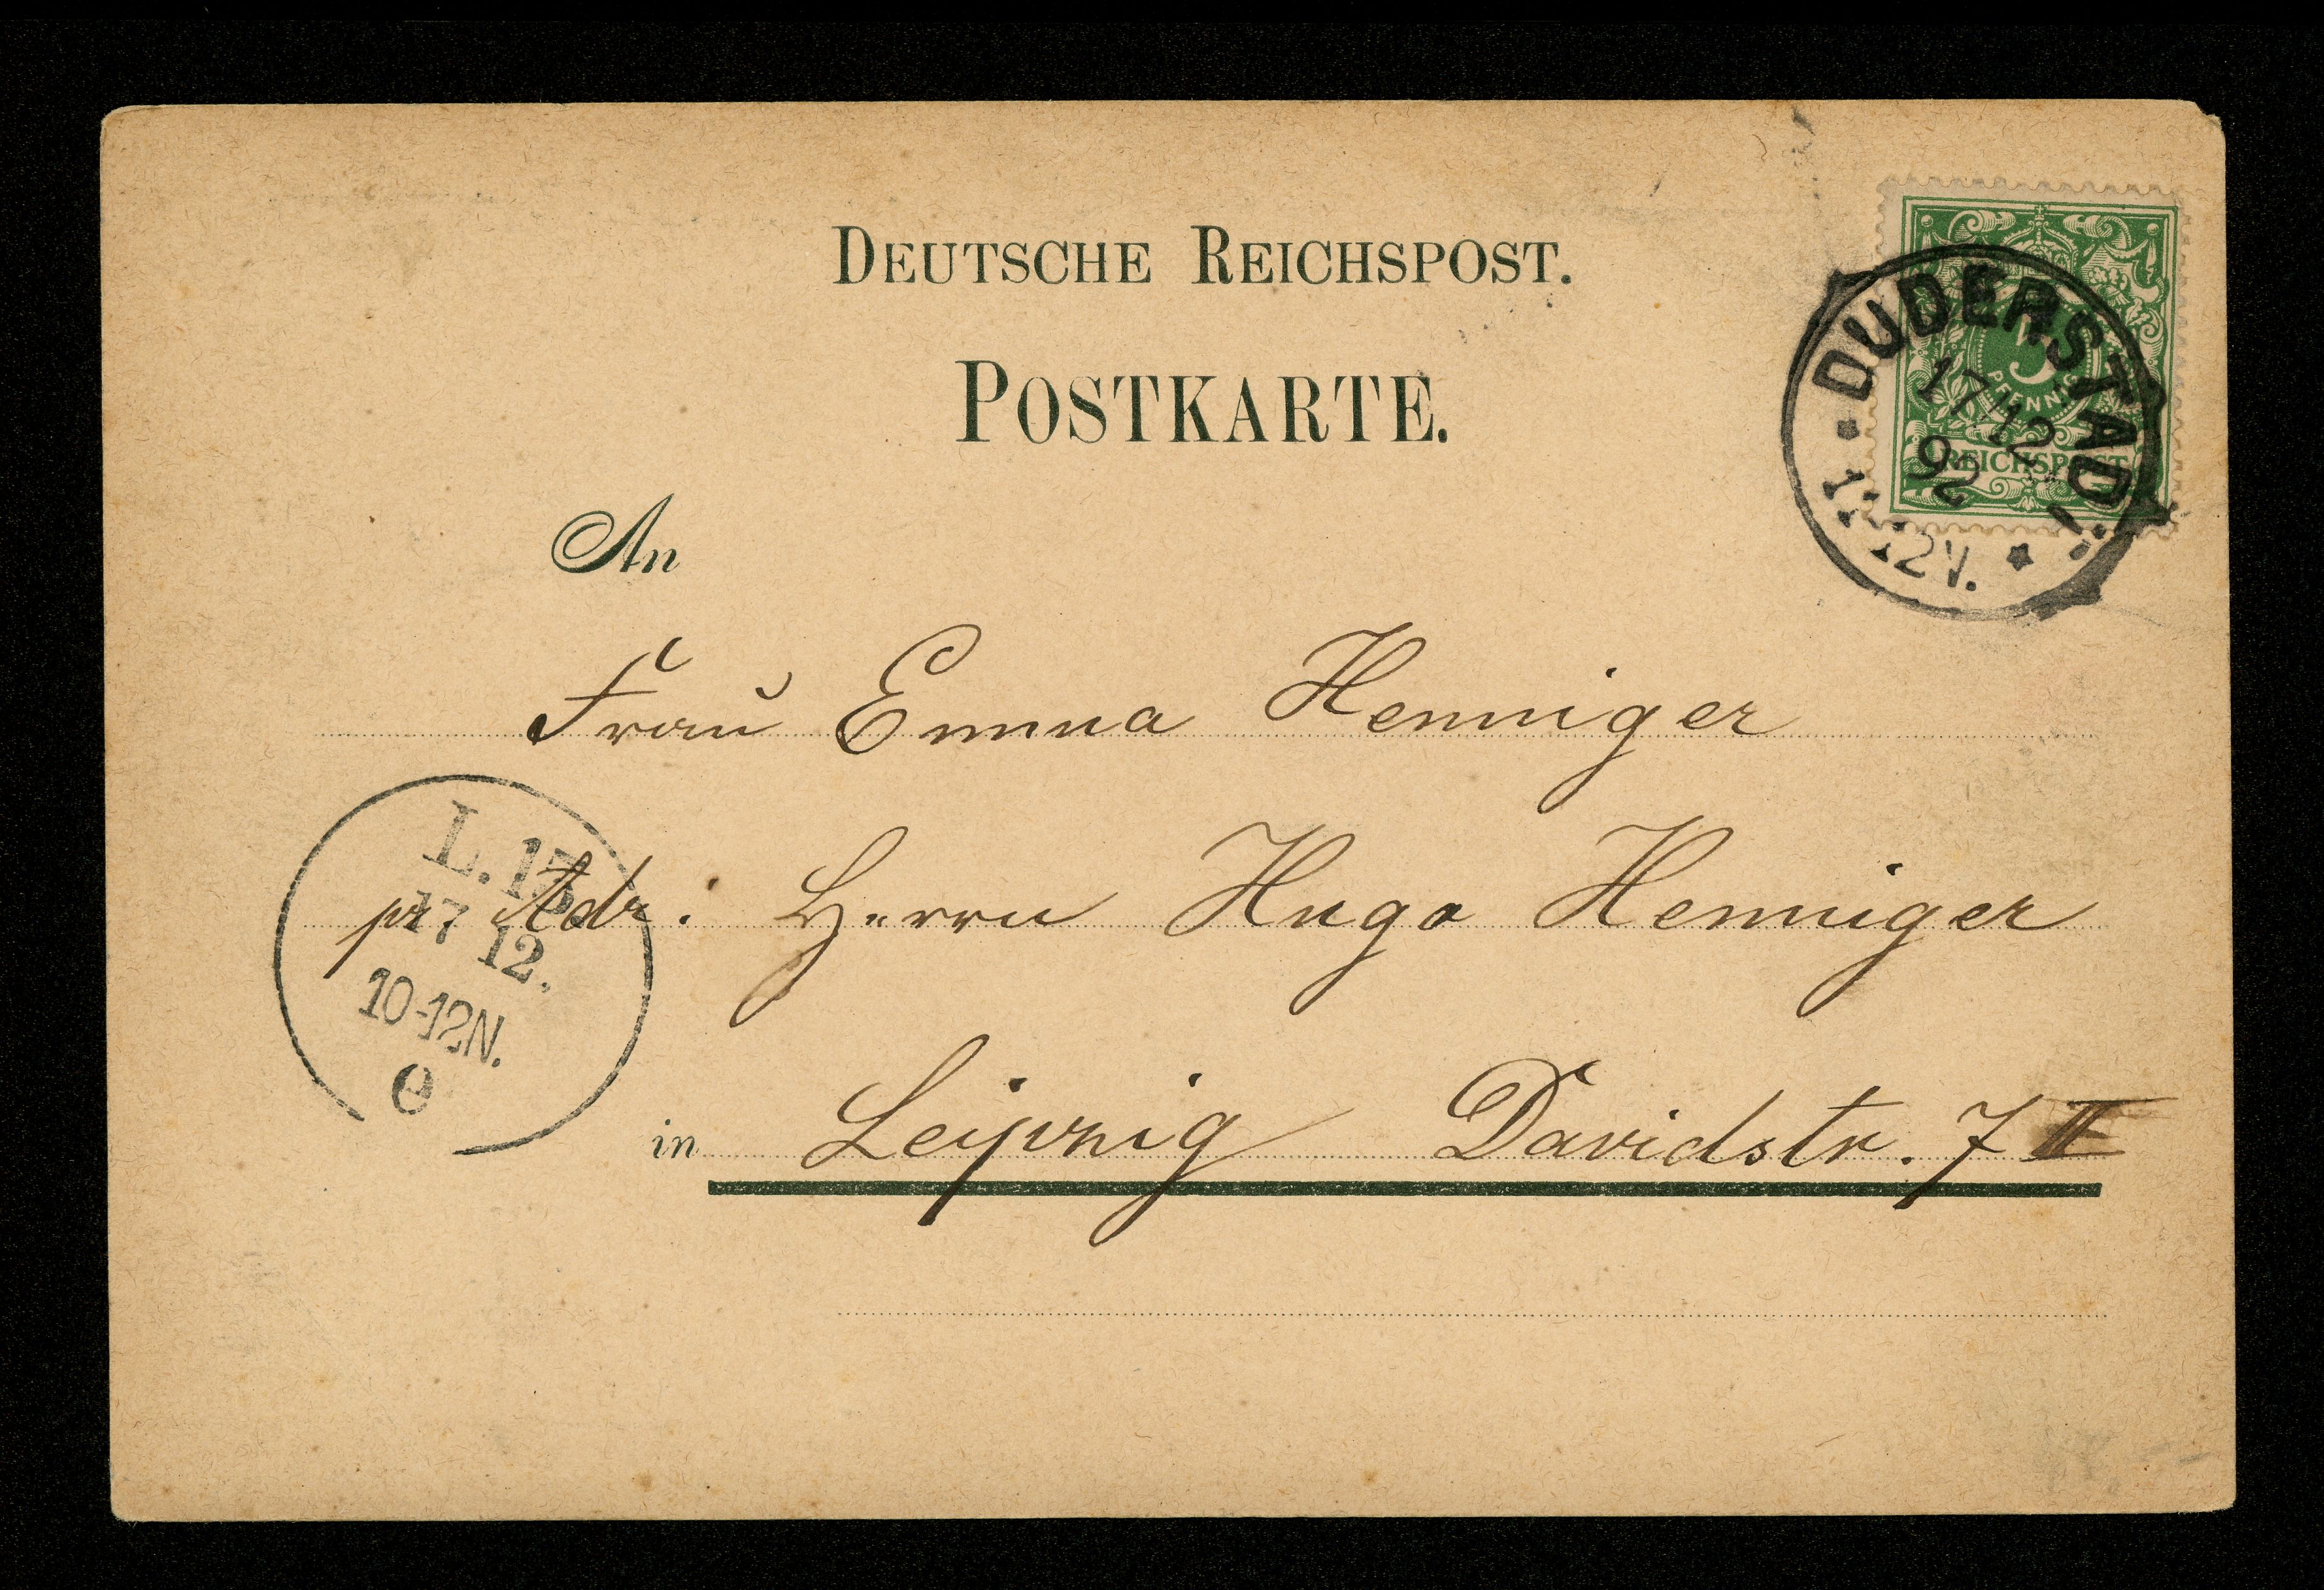 DEUTSCHE REICHSPOST.
POSTKARTE.
5
PFENNIG
REICHSPOST
DUDERSTADT
17/12
92
12V.
An
Frau Emma Henniger
L. 13.
17 12.
10-12N.
e
pr Adr. Herrn Hugo Henniger
in Leipzig Davidstr. 7 II